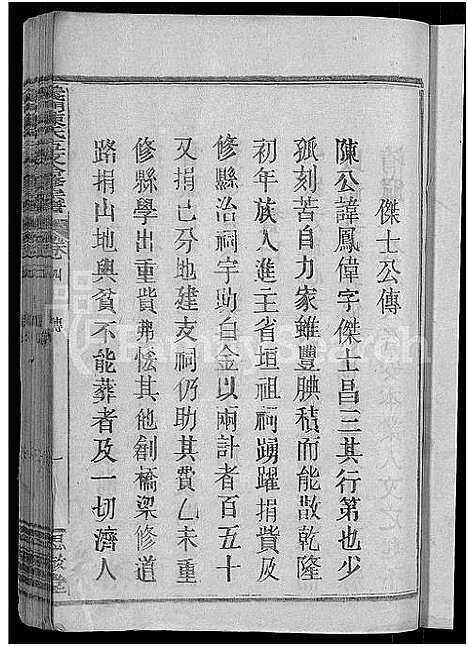 傑士公傳
陳公諱鳳偉字傑士昌三其行第也少
孤刻苦自力家雖豐腆積而能散乾隆
初年族人進主省垣祖祠踴躍捐貲及
修縣治祠宇助白金以兩計者百五十
又捐己分地建支祠仍助其費乙未重
修縣學出重貲弗恡其他創橋梁修道
路捐山地與貧不能葬者及一切濟人
義門陳氏五支合修宗譜
卷四
傳
一
FamilySearch